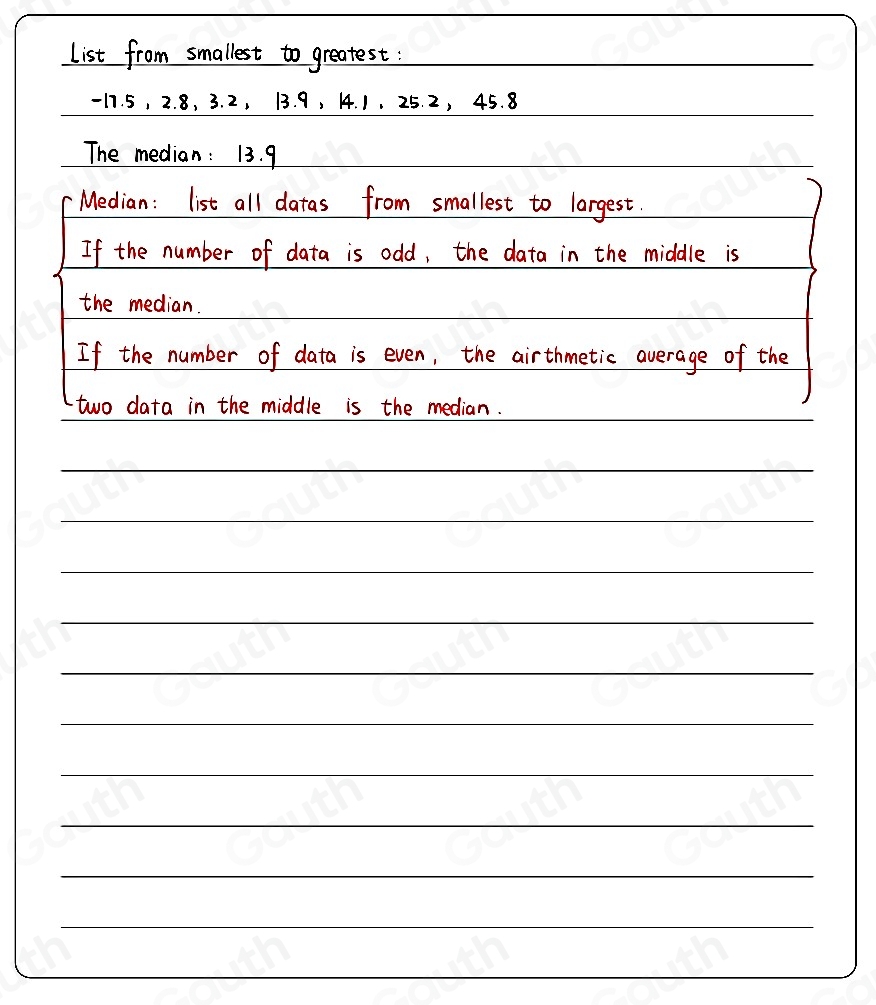 List from smallest to greatest:
-17.5, 2.8, 3.2, 13.9, 14.1, 25.2, 45.8
The median: 13.9
Median: list all datas from smallest to largest.
If the number of data is odd, the data in the middle is
the median.
If the number of data is even, the airthmetic average of the
two data in the middle is the median.